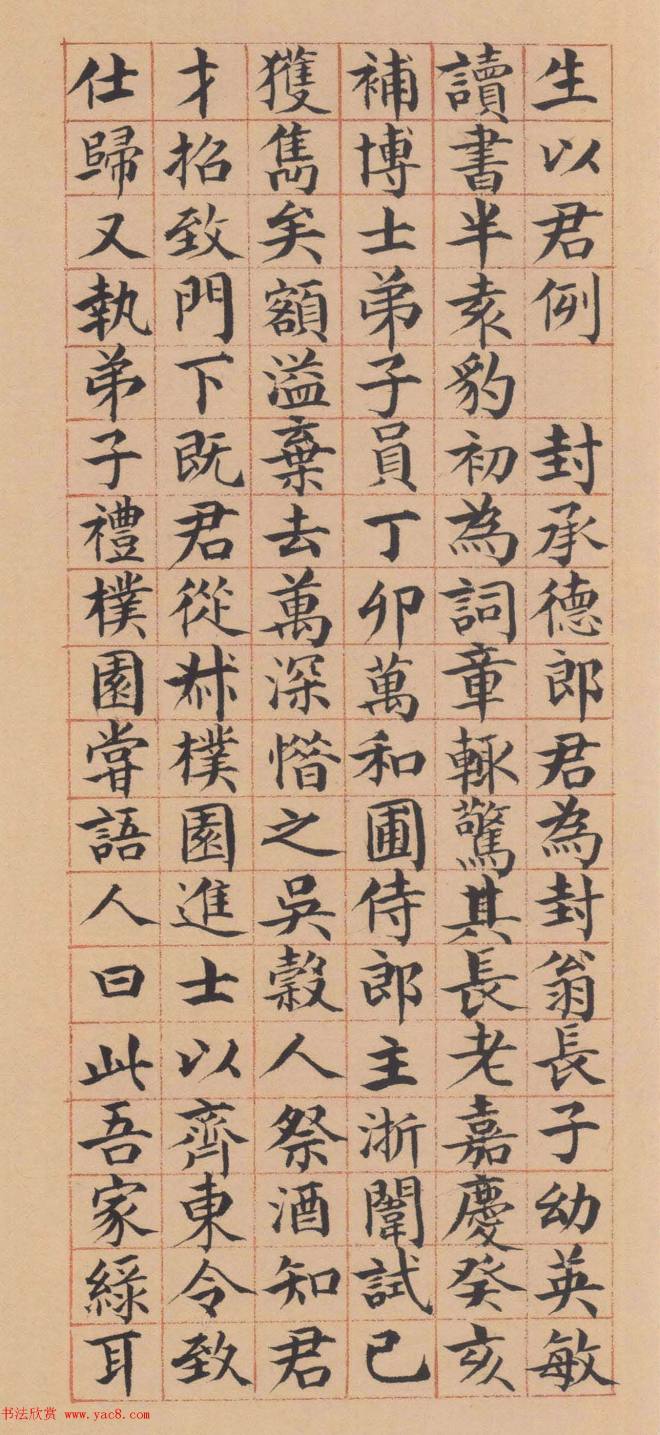 生以君例　封承德郎君為封翁長子幼英敏
讀書半袁豹初為詞章輒驚其長老嘉慶癸亥
補博士弟子員丁卯萬和圃侍郎主浙闈試已
獲雋矣額溢棄去萬深惜之吳穀人祭酒知君
才招致門下既君從叔樸園進士以齊東令致
仕歸又執弟子禮樸園嘗語人曰此吾家綠耳
书法欣赏 www.yac8.com